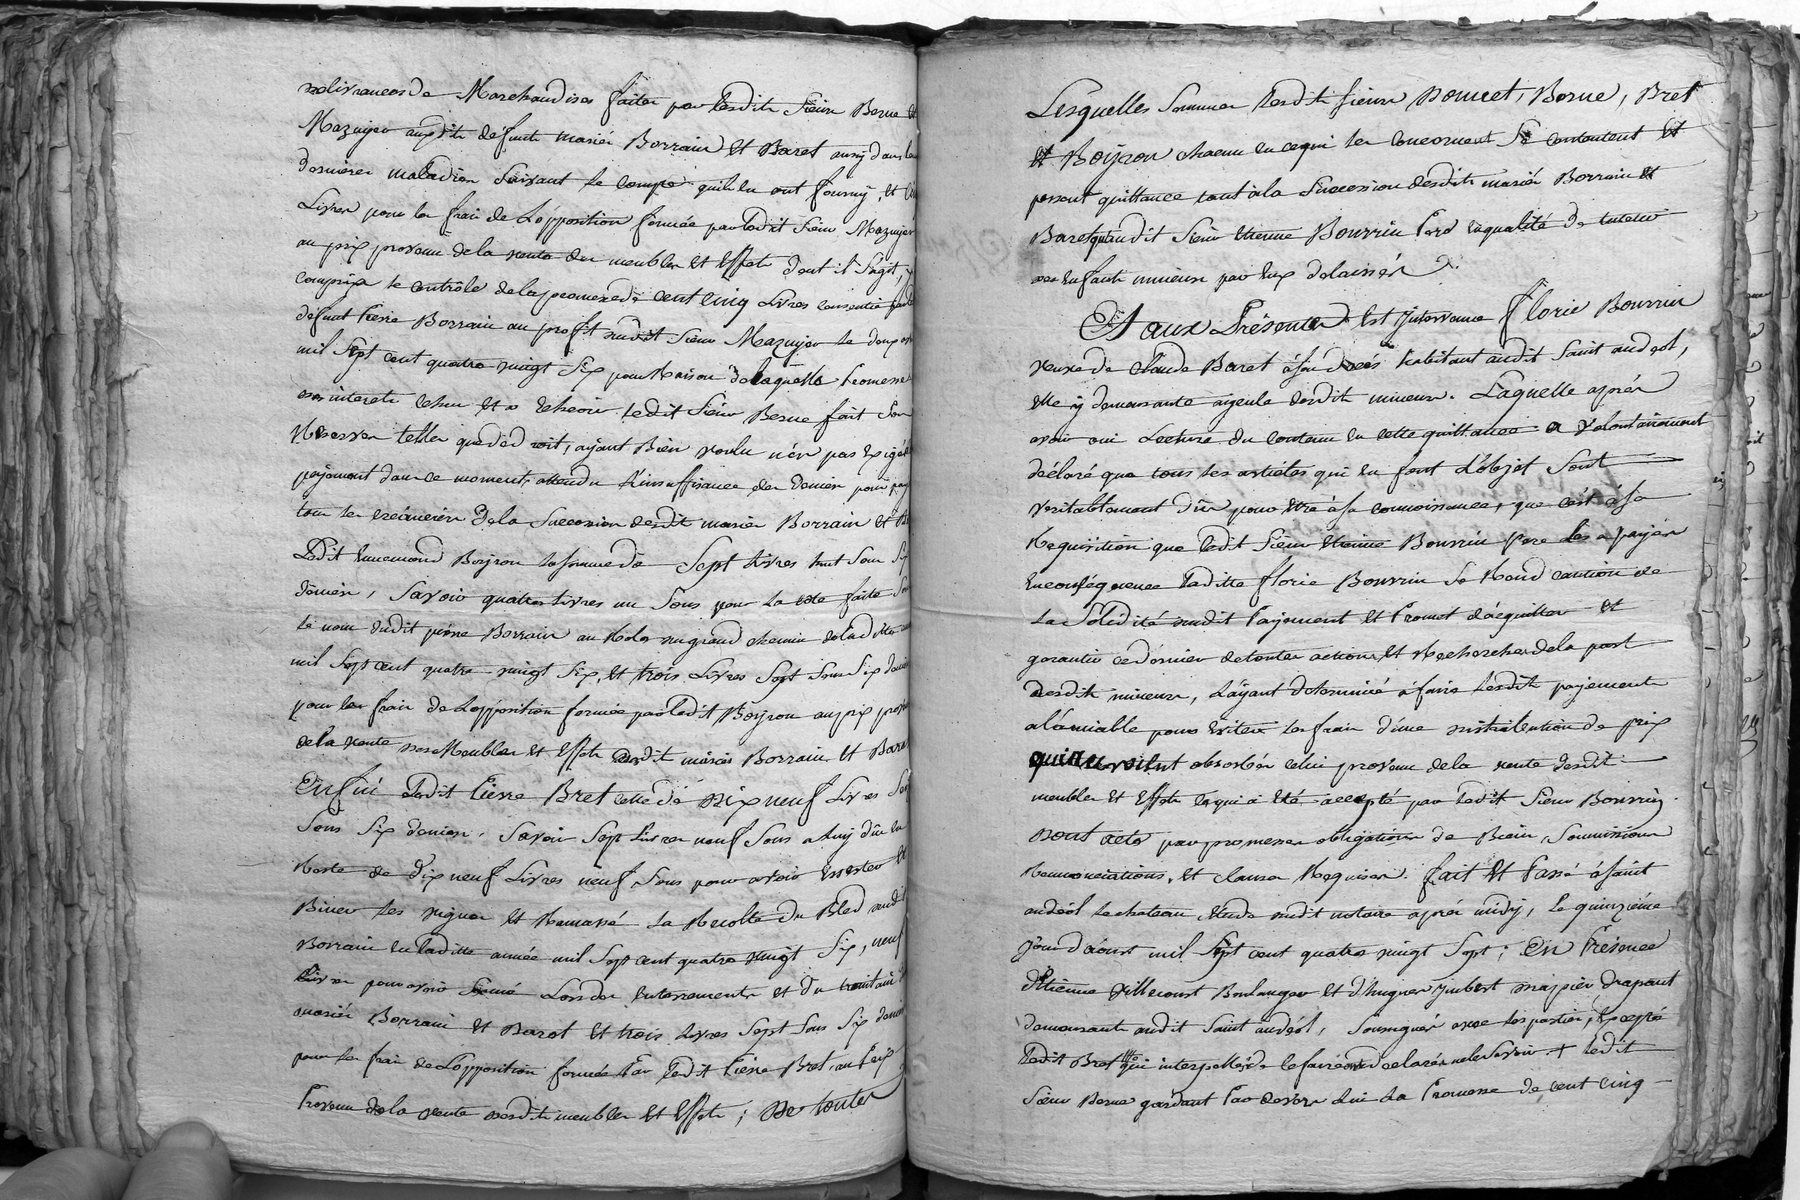 delivrances de Marchandises faites par lesdits Sieurs Berne et
Mazuyer auxdits defunts mariés Borrain et Baret aussy dans leur
derniere maladies Suivant le compte qu'ils en ont fourny, et
Livres pour les frais de L'opposition formée par ledit Sieur Mazuyer
au prix provenu de la vente des meubles et Effets dont il S'agit,
compris le contrôle de la promesse de cent cinq Livres consentie par
défunt Pierre Borrain au profit dudit Sieur Mazuyer le douze
mil Sept cent quatre vingt Six pour Raison de laquelle Promesse
des interets echus et a echeoir ledit Sieur Berne fait Ses
Reserves telles que de droit, ayant Bien voulu n'en pas Exiger
payement dans ce moment, attendu L'insuffisance des deniers pour payer
tous les créanciers de la Succession desdits mariés Borrain et
Ledit Ennemond Boyron la somme de Sept Livres huit Sous Six
deniers, Savoir quatre livres un Sous pour la cote faite Sous
le nom dudit pierre Borrain au Role du grand chemin de ladite année
mil Sept cent quatre vingt Six, et trois Livres Sept Sous Six deniers
pour les frais de L'opposition formée par ledit Boyron au prix provenu
de la vente des Meubles et Effets desdits mariés Borrain et Baret
Enfin Ledit Pierre Bret celle de Dix neuf Livres Seize
Sous Six deniers, Savoir Sept Livres neuf Sous a Luy dûs en
Reste de Dix neuf Livres neuf Sous pour avoir
Biner les vignes et Ramassé la Recolte du Bled audit
Borrain en ladite année mil Sept cent quatre vingt Six, neuf
Livres pour avoir Sonné Lors des enterrements et du trentain des
mariés Borrain et Baret et trois Livres Sept Sous Six deniers
pour les frais de L'opposition formée Par Ledit Pierre Bret, au Prix
Provenu de la vente desdits meubles et Effets; De toutes
Lesquelles Sommes Lesdits Sieurs Doncet, Berne, Bret
et Boyron chacun en ce qui les concernent Se contentent et
passent quittance tant à la Succession desdits mariés Borrain et
Baret qu'audit Sieur Etienne Bourrin Pere en qualité de tuteur
des Enfants mineurs par Eux delaissés.
Et aux Présentes Est Intervenue Florie Bourrin
veuve de Claude Baret à Son decès habitant audit Saint andeol,
elle y demeurante ayeule desdits mineurs. Laquelle après
avoir oui Lecture du contenu en cette quittance a volontairement
déclaré que tous les articles qui en font L'objet Sont
veritablement dûs pour être à Sa connoissance, que c'est à Sa
Requisition que ledit Sieur Etienne Bourrin Pere les a payés
En conséquence Ladite florie Bourrin Se Rend caution de
la Solidité dudit Payement et Promet d'acquitter et
garantir ce dernier de toutes actions et Recherches de la part
desdits mineurs, L'ayant determiné à faire lesdits payements
à l'amiable pour Eviter les frais d'une distribution de prix
qui auroient absorbés celui provenu de la vente desdits
meubles et Effets ce qui a été accepté par ledit Sieur Bourrin.
Dont acte par promesses obligations de Biens, Soumissions
Renonciations, et clauses Requises. fait et Passé à Saint
andéol le chateau Etude dudit notaire après midy, le quinzième
jour d'aoust mil Sept cent quatre vingt Sept; En Présence
d'Etienne villecourt Boulanger et d'hugues Imbert papier drapant
demeurants audit Saint andéol, Soussignés avec les parties, Excepté
Ledit Bret qui interpellé de le faire a declaré ne le Savoir + Ledit
Sieur Berne gardant Par devers Lui La Promesse de cent cinq